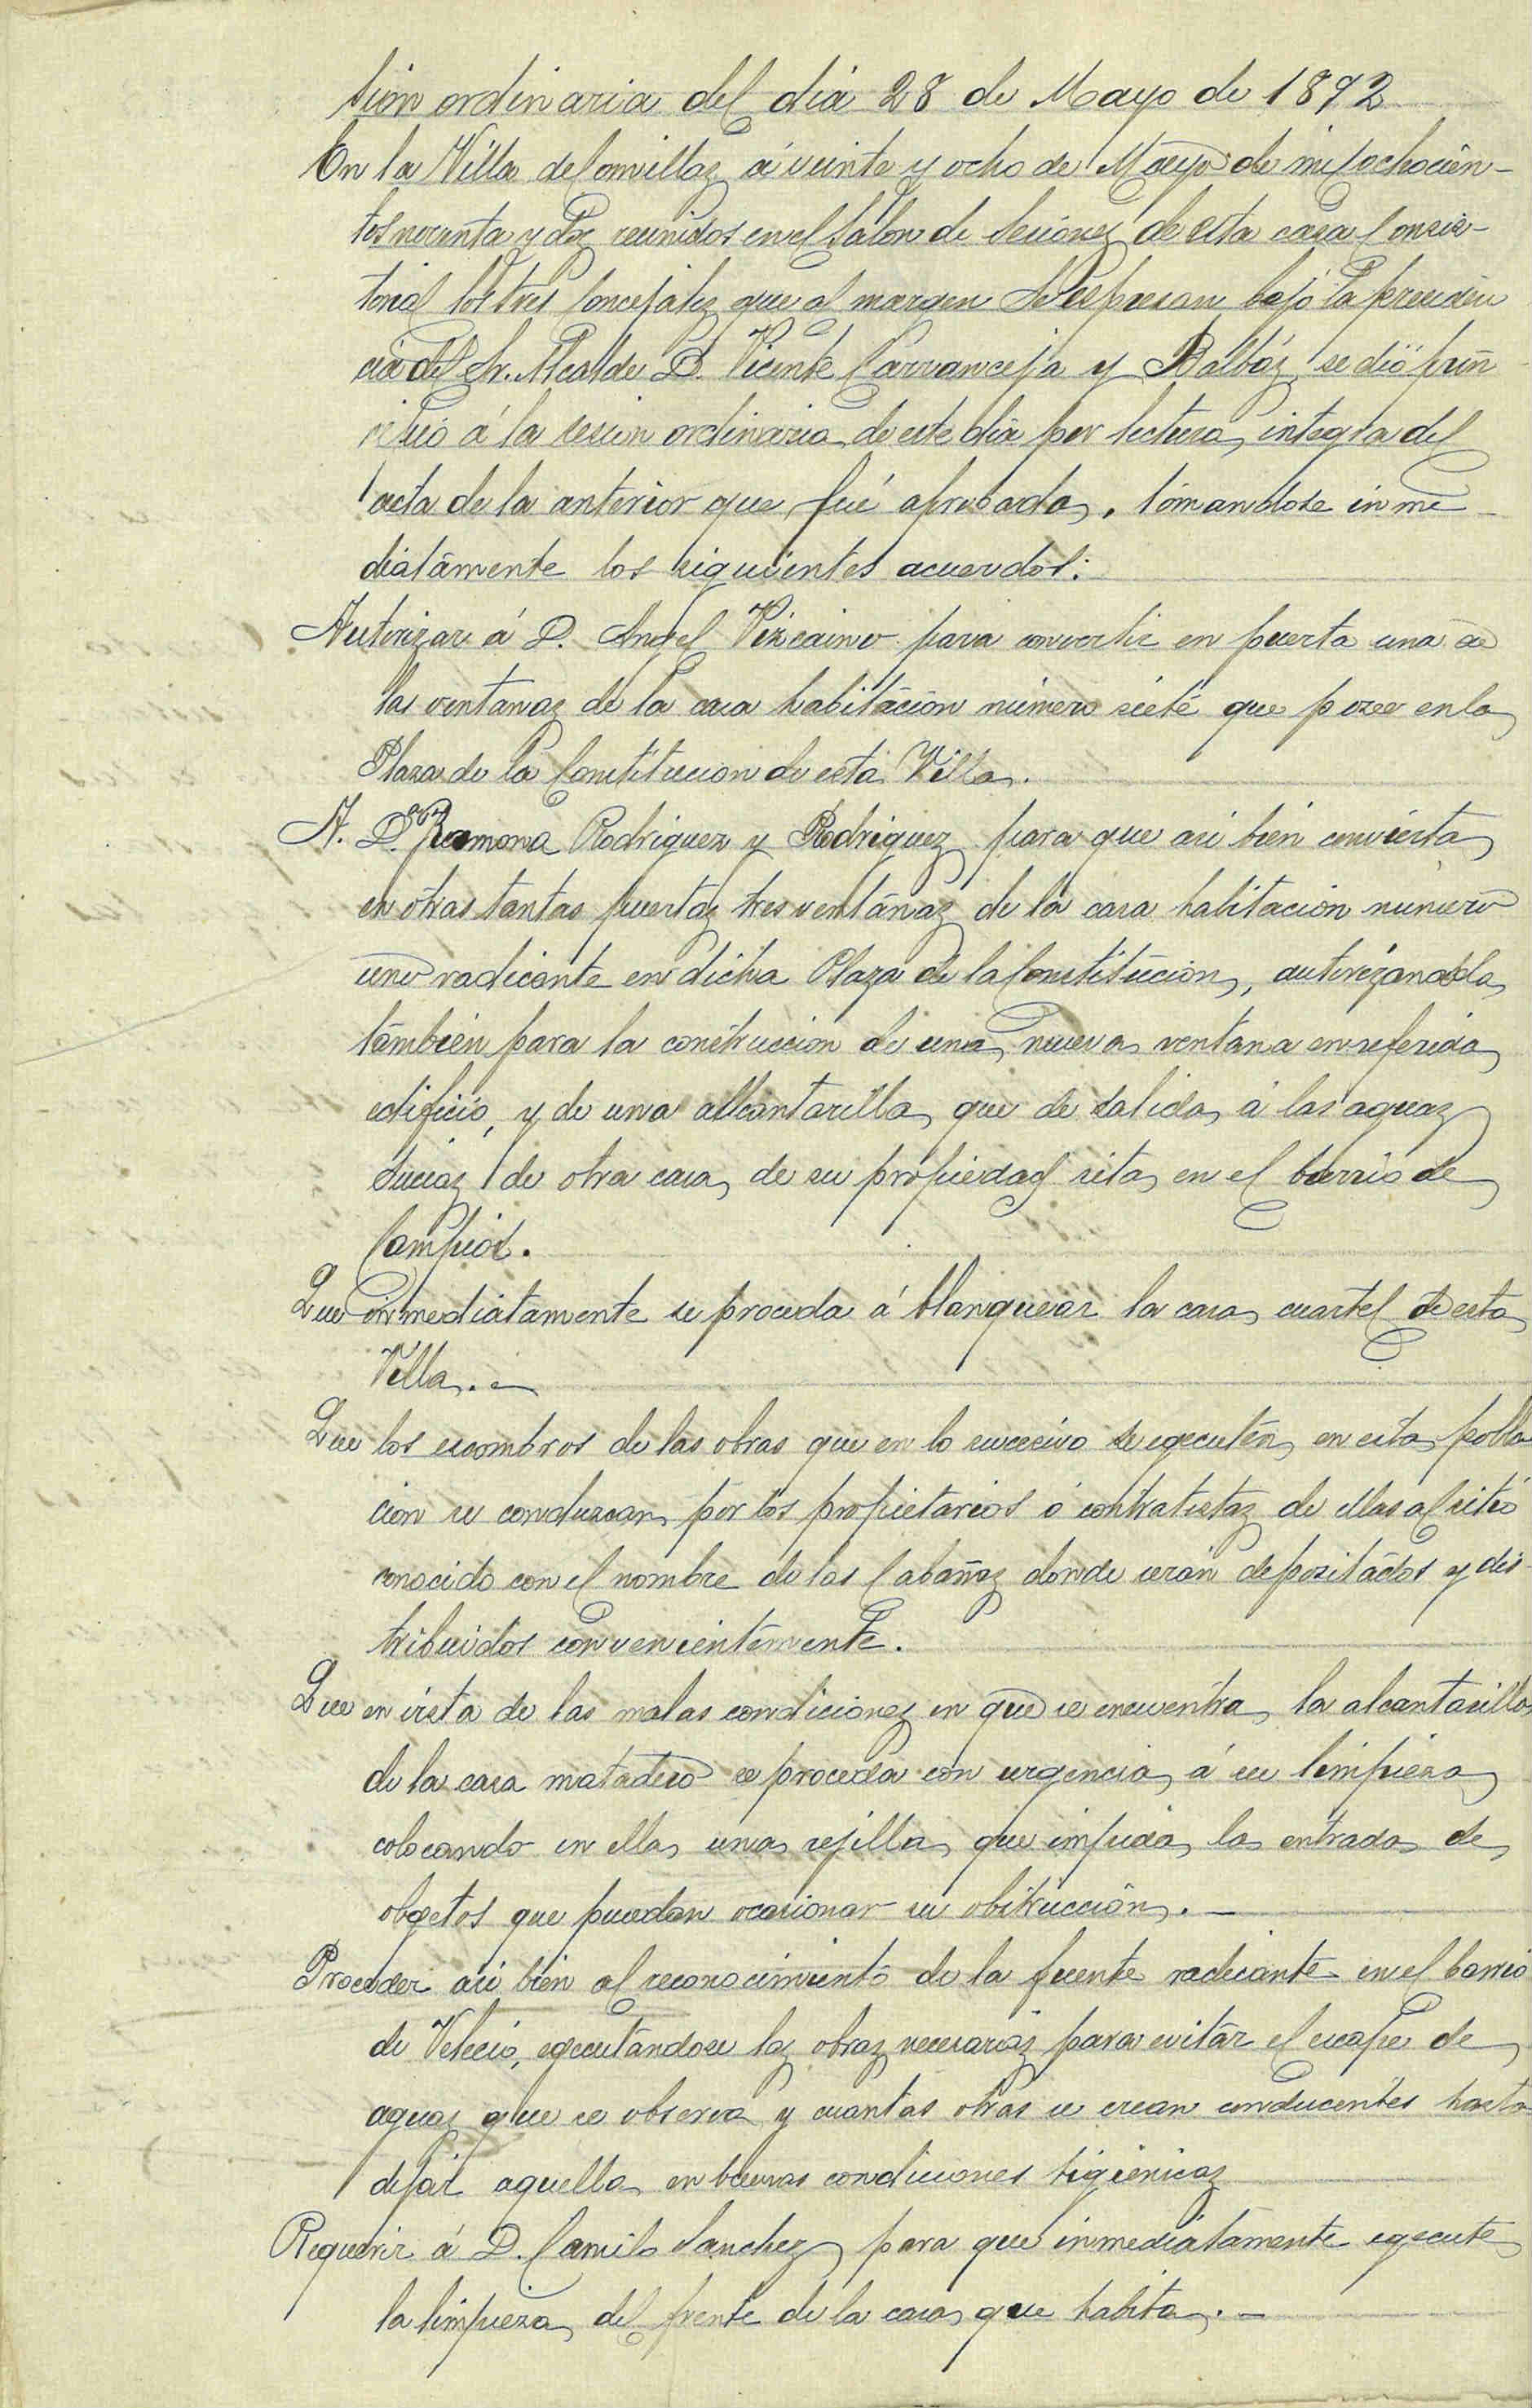 sion ordinaria del dia 28 de Mayo de 1892
En la Villa de Comillas á veinte y ocho de Mayo de mil ochocien-
tos noventa y dos reunidos en el Salon de Sesiones de esta casa Consis-
torial los tres Concejales que al margen se espresan bajo la presiden
cia del Sr. Alcalde D. Vicente Carranceja y Balbás se dió prin
cipio á la sesion ordinaria de este dia por lectura integra del
acta de la anterior que fué aprobada, tomandose inme-
diatamente los siguientes acuerdos:
Autorizar á D. Angel Vizcaino para convertir en puerta una de
las ventanas de la casa habitacion número siete que posee en la
Plaza de la Constitucion de esta Villa.
A. D.ª Ramona Rodriguez y Rodriguez para que asi bien convierta
en otras tantas puertas tres ventanas de la casa habitacion número
uno radicante en dicha Plaza de la Constitucion, autorizandola
tambien para la construccion de una nueva ventana en referido
edificio, y de una allcantarilla que de salida á las aguas
sucias de otra casa de su propiedad sita en el barrio de
Campios.
Que inmediatamente se proceda á blanquear la casa cuartel de esta
Villa.
Que los escombros de las obras que en lo sucesivo se egecuten en esta pobla
cion se conduzcan por los propietarios ó contratistas de ellas al sitio
conocido con el nombre de las Cabañas donde seran depositados y dis-
tribuidos convenientemente.
Que en vista de las malas condiciones en que se encuentra la alcantarilla
de la casa matadero se proceda con urgencia á su limpieza
colocando en ella una rejilla que impida la entrada de
obgetos que puedan ocasionar su obstruccion.
Proceder asi bien al reconocimiento de la fuente radicante en el barrio
de Velecio, egecutandose las obras necesarias para evitar el escape de
aguas que se observa y cuantas otras se crean conducentes hasta
dejar aquella en buenas condiciones higienicas
Requerir á D. Camilo Sanchez para que inmediatamente egecute
la limpieza del frente de la casa que habita.